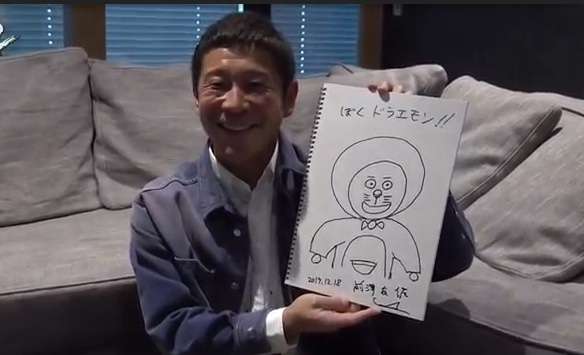 ぼく ドラエモン!!
2017.12.18 前澤友作